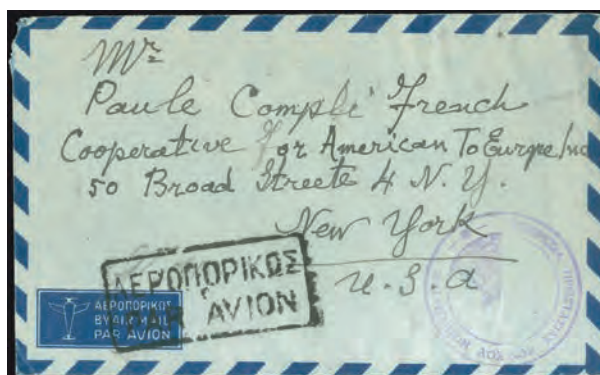 Mr
Paule Compli French
Cooperative For American To Europe Inc
50 Broad Streete 4 N. Y.
New York
U. S. A
ΑΕΡΟΠΟΡΙΚΩΣ
AVION
ΑΕΡΟΠΟΡΙΚΩΣ
BY AIR MAIL
PAR AVION